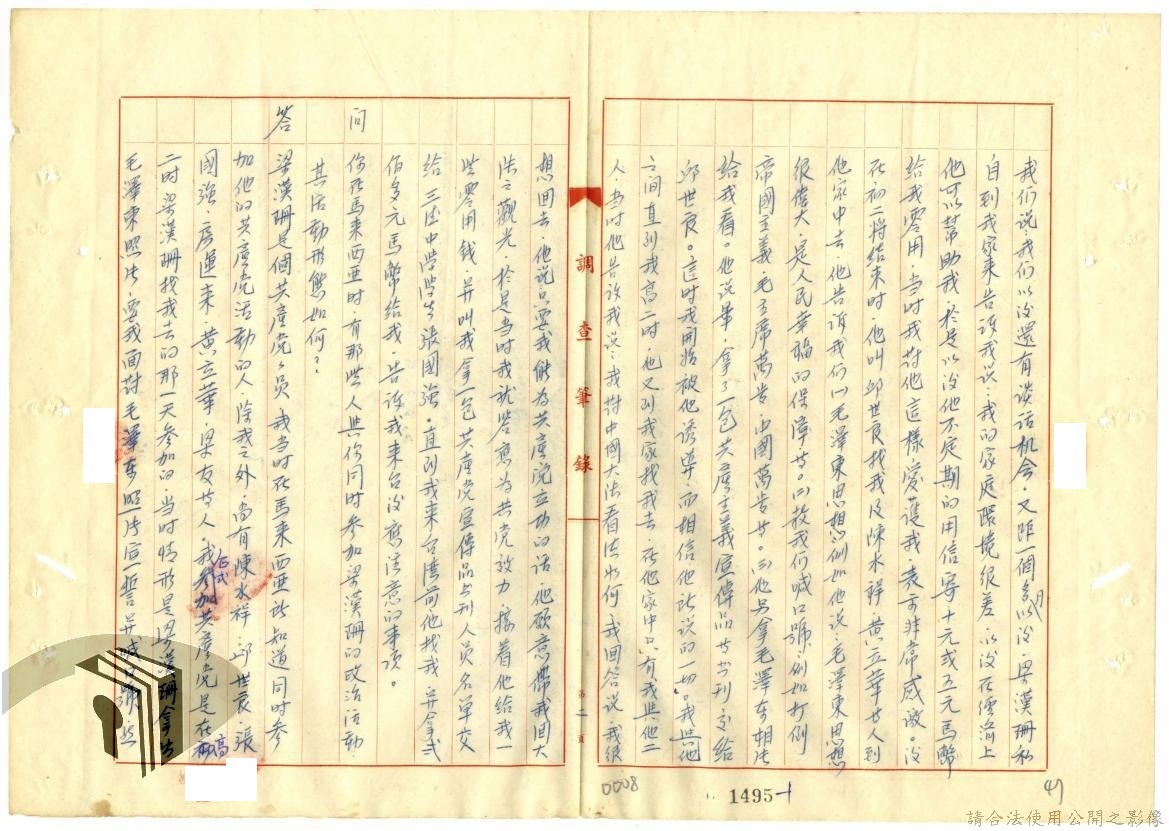 我们说我们以後還有谈话机会，又距一個多月以後，梁漢珊私
自到我家来告诉我说，我的家庭環境很差，以後在經濟上
他可以帮助我，於是以後他不定期的用信寄十元或五元馬幣
給我零用，当时我对他這樣爱護我，表示非常感激。後
在初二将结束时，他叫邱世良找我及陳水祥黄立華廿人到
他家中去，他告诉我们(一)毛澤東思想例如他说，毛澤東思想
很偉大，是人民幸福的保障等。(二)教我们喊口號，例如打倒
帝國主義，毛主席萬岁，中國萬岁等。(三)他另拿毛澤东相片
給我看。他说畢，拿了一包共產主義宣傳品等书刊交給
邱世良。這时我開始被他诱導，而相信他所说的一切。我與他
之间直到我高二时，他又到我家找我去，在他家中只有我與他二
人，当时他告诉我说：我对中國大陆看法如何，我回答说，我很
調查筆錄
第二頁
想回去，他说只要我能为共產党立功的话，他願意帶我回大
陆观光，於是当时我就答應为共党效力，接着他給我一
些零用钱，并叫我拿一包共產党宣傳品与刊人员名單交
給三民中學學生張國強，直到我来台湾前他找我，并拿弍
佰多元馬幣給我，告诉我来台後應注意的事項。
问 你在馬来西亜时，有那些人與你同时参加梁漢珊的政治活動
其活動形態如何？
答 梁漢珊是個共產党人员，我当时在馬来西亜所知道同时参
加他的共產党活動的人，除我之外，尚有陳水祥，邱世良，張
國強，房運来，黄立華，梁友等人，我正式参加共產党是在高
二时，梁漢珊找我去的那一天参加的，当时情形是梁漢珊拿出
毛澤東照片，要我面对毛澤东照片宣誓并喊口號，然
0008
1495-1
49
請合法使用公開之影像